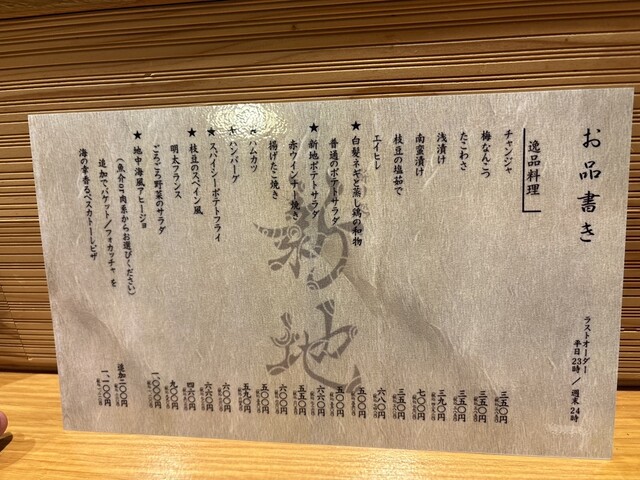 お品書き
ラストオーダー
平日23時／週末24時
逸品料理
チャンジャ 三五〇円
梅なんこつ 三五〇円
たこわさ 三五〇円
浅漬け 三九〇円
南蛮漬け 七〇〇円
枝豆の塩茹で 三五〇円
エイヒレ 六八〇円
★ 白髪ネギと蒸し鶏の和物 五〇〇円
普通のポテトサラダ 五〇〇円
★ 新地ポテトサラダ 六六〇円
赤ウインナー焼き 五五〇円
揚げたこ焼き 六〇〇円
ハムカツ 五〇〇円
ハンバーグ 五九〇円
★ スパイシーポテトフライ 六〇〇円
★ 枝豆のスペイン風 六六〇円
明太フランス 四六〇円
ごろごろ野菜のサラダ 九〇〇円
★ 地中海風アヒージョ 一、〇〇〇円
(魚介or肉系からお選びください)
追加でバケット／フォカッチャを 追加二〇〇円
海の幸香るペスカトーレピザ 一、一〇〇円
新地